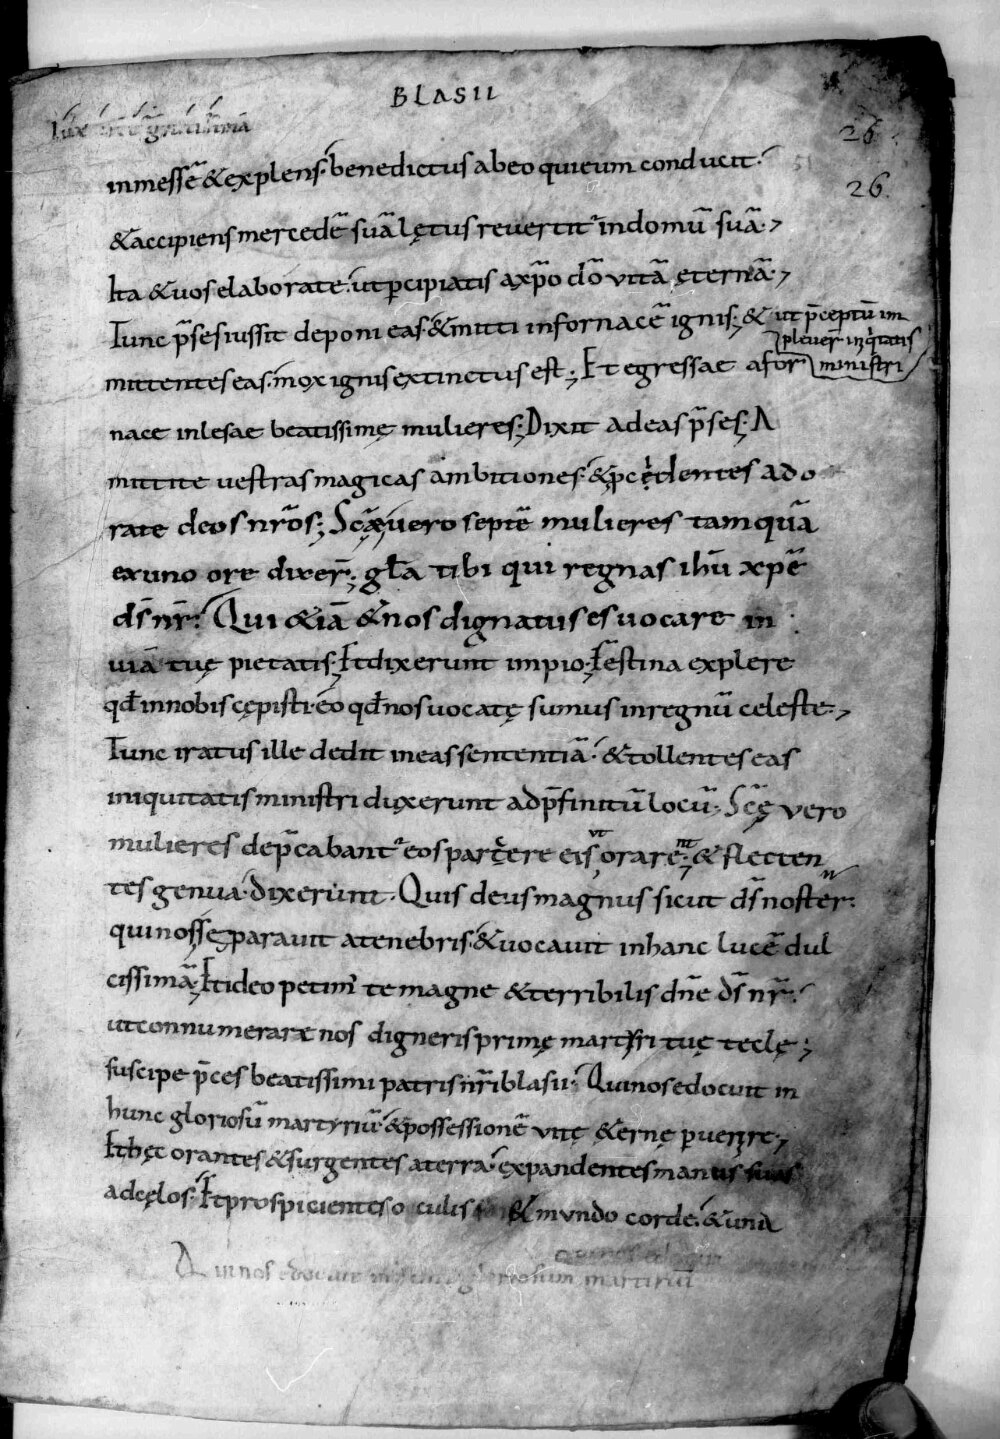 BLASII
26
26
inmessē &explens· benedictus abeo quieum conducit·
&accipiens mercedē suā lętus reuertit᷑ indomū suā·,
Ita &uos elaborate· ut p̄cipiatis axp̄o dō vitā ęternā·,
Tunc p̄ses iussit deponi eas· &mitti infornacē ignis; & ut p̄ceptū im
pleuer̄ iniq̇tatis
ministri
mittentes eas· mox ignis extinctus est; Et egressae afor
nace inlesae beatissimę mulieres; Dixit adeas p̄ses; A
mittite vestras magicas ambitiones· &p̄cedentes ado
rate deos nr̄os; Scę̄ uero septē mulieres tamquā
exuno ore dixer̄; gła tibi qui regnas ihū xpē
ds̄ nr̄· Qui &iā &nos dignatus es uocare in
uiā tuę pietatis; Et dixerunt impio; Festina explere
qđ innobis cępisti· eo qđ nos uocatę sumus inregnū celeste·,
Tunc iratus ille dedit ineas sententiā· &tollentes eas
iniquitatis ministri duxerunt adp̄finitū locū· Scę̄ vero
mulieres dep̄cabant᷑ eos parcere eis ut orarent; &flecten
tes genua· dixerunt· Quis deus magnus sicut ds̄ noster·
qui nos separauit atenebris· &uocauit inhanc lucē dul
cissimā; Et ideo petim᷒ te magne &terribilis dn̄e ds̄ nr̄·
ut connumerare nos digneris primę martyri tuę teclę;
suscipe p̄ces beatissimi patris nr̄i blasii· Qui nos edocuit in
hunc gloriosū martyriū· &possessionē vitę &ernę p̄uenire·,
Et hęc orantes &surgentes aterra· expandentes manus suas
adcęlos· Et prospicientes oculis & mundo corde· &una
Qui nos edocuit gloriosum martiriū